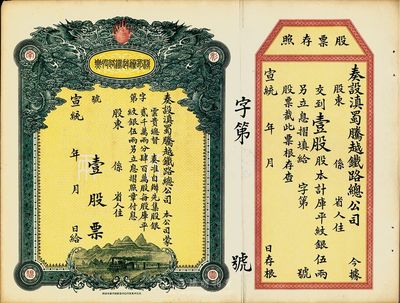 股票存照
奏設滇蜀騰越鐵路總公司 今據
股東 係 省人住
交到壹股股本計庫平紋銀伍兩
另立息摺填給 字第 號
股票截此票根存查
宣統 年 月 日存根
字第 號
奏設滇蜀騰越鐵路總公司 本公司蒙
雲貴總督 奏准自辦先集股銀
貳千萬兩分四百萬股每股庫平
紋銀伍兩另立息摺照章付息
字第 號
股東 係 省人住
壹股票
宣統 年 月 日給